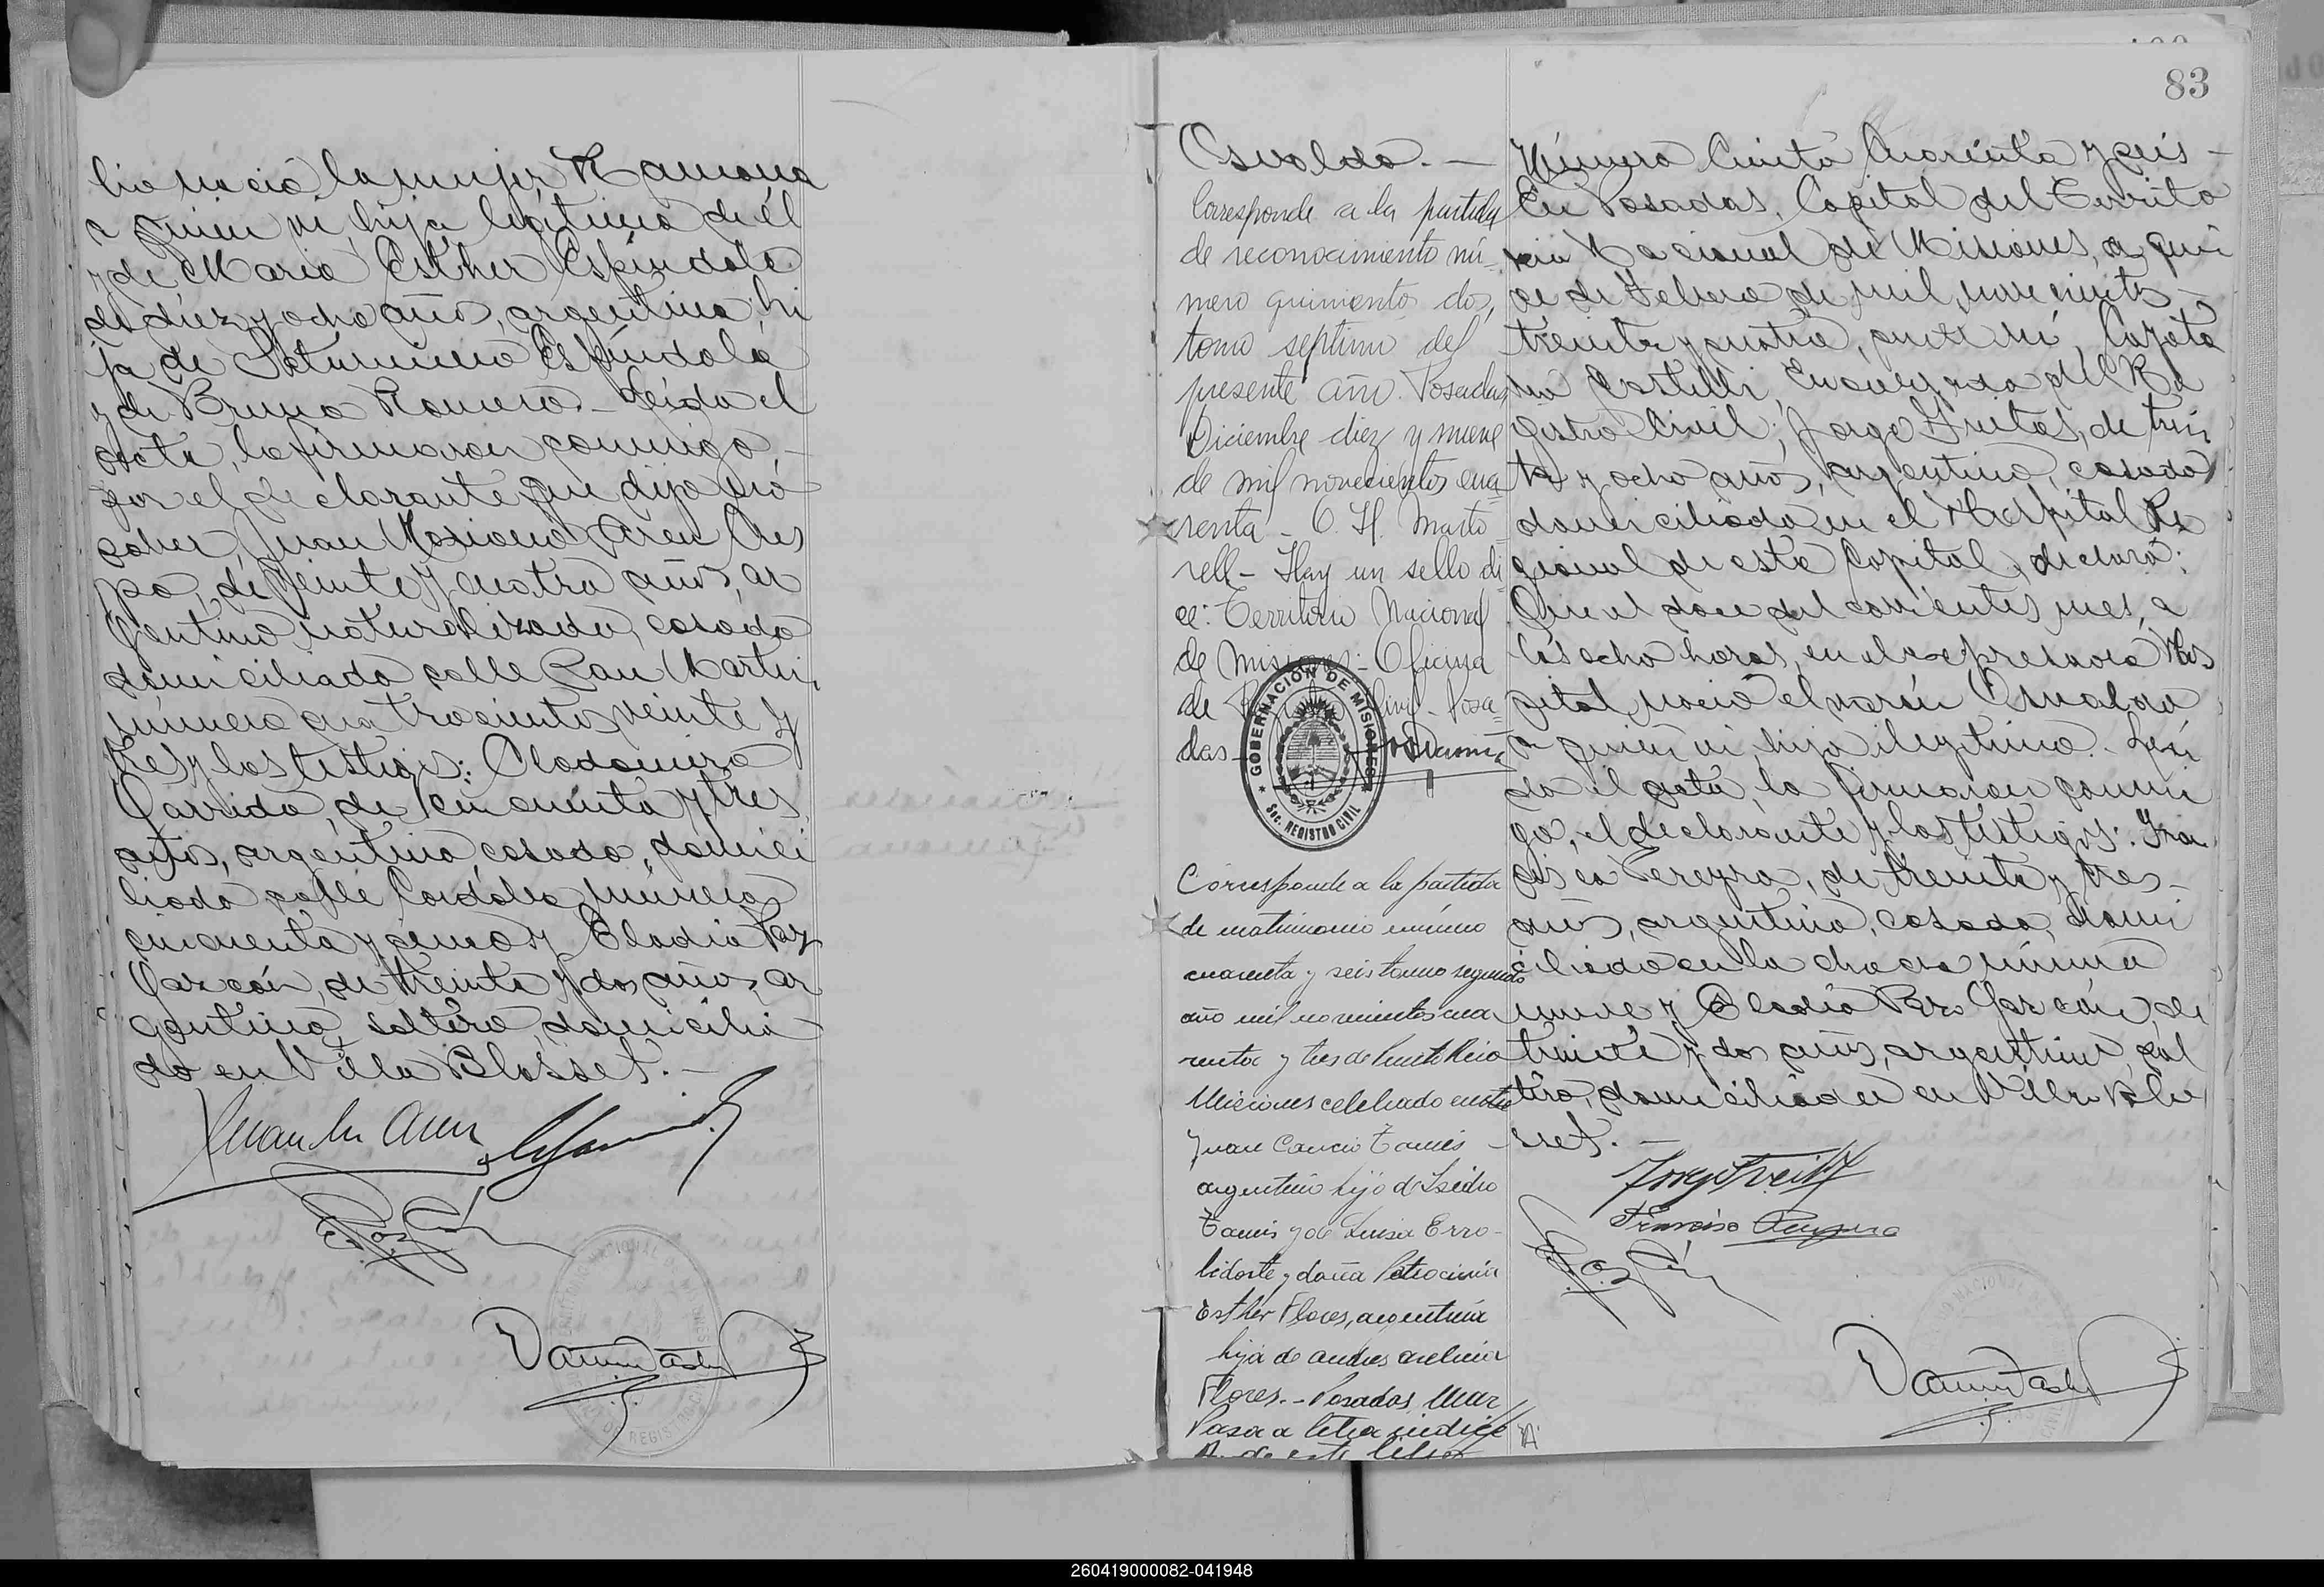 lio nació la mujer Ramona
a quien vi hija legítima de él
y de Maria Esther Espíndola
de diez y ocho años, argentina, hi
ja de Saturnino Espíndola
y de Bruna Romero.- Leída el
acta, la firmaron conmigo
por el declarante que dijo no
saber, Juan Mariano Aren Cres
po, de veinte y cuatro años, ar
gentino naturalizado, casado
domiciliado calle San Martin,
número cuatrocientos veinte y
tres y los testigos: Clodomiro
Garrido, de cincuenta y tres
años, argentino casado, domici
liado calle Cordoba número
cincuenta y y Eladio Paz
Garzón, de treinta y dos años, ar
gentino, soltero, domicilia
do en Villa Blosset.-
83
Osvaldo.-
Corresponde a la partida
de reconocimiento nú-
mero quinientos dos,
tomo septimo del
presente año. Posadas
Diciembre diez y nueve
de mil novecientos cua
renta - O. H. Marto
rell - Hay un sello di
ce: Territorio Nacional
de Misiones - Oficina
de Civil - Posa-
das
GOBERNACIÓN DE MISIONES
Sec. REGISTRO CIVIL
Corresponde a la partida
de matrimonio número
cuarenta y seis tomo segundo
año mil novecientos cua
renta y tres de Puerto Rico
Misiones celebrado entre
Juan Cancio
argentino hijo de Isidro
y de Luisa Erro-
bidarte y doña Patrocinia
Esther Flores, argentina
hija de Andres Avelino
Flores.- Posadas
Pasa a letra indice
A. de este libro
Número Ciento Cuarenta y seis -
En Posadas, Capital del Territo
rio Nacional de Misiones, a quin
ce de Febrero de mil novecientos
treinta y cuatro, ante mí, Cayeta
no Castelli, Encargado del Re
gistro Civil; Jorge Freitas, de trein
ta y ocho años, argentino, casado
domiciliado en el Hospital Re
gional de esta Capital, declaró:
Que el doce del corriente mes, a
las ocho horas, en el expresado Hos
pital, nació el varón Osvaldo
a quien vi, hijo ilegítimo.- Leí
da el acta, la firmaron conmi
go, el declarante y los testigos: Fran
cisco Pereyra, de treinta y tres
años, argentino, casado, domi
ciliado en la chacra número
nueve y Eladio Paz Garzón, de
treinta y dos años, argentino, sol
tero, domiciliado en Villa Blo
sset.-
Francisco Pereyra
260419000082-041948